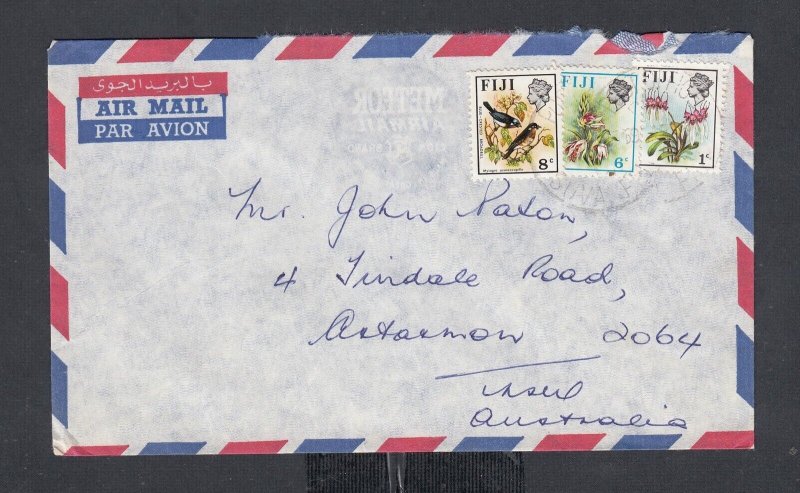 بالبريد الجوي
AIR MAIL
PAR AVION
FIJI
8c
FIJI
6c
FIJI
1c
Mr. John Paton,
4 Tindale Road,
Artarmon 2064
NSW
Australia